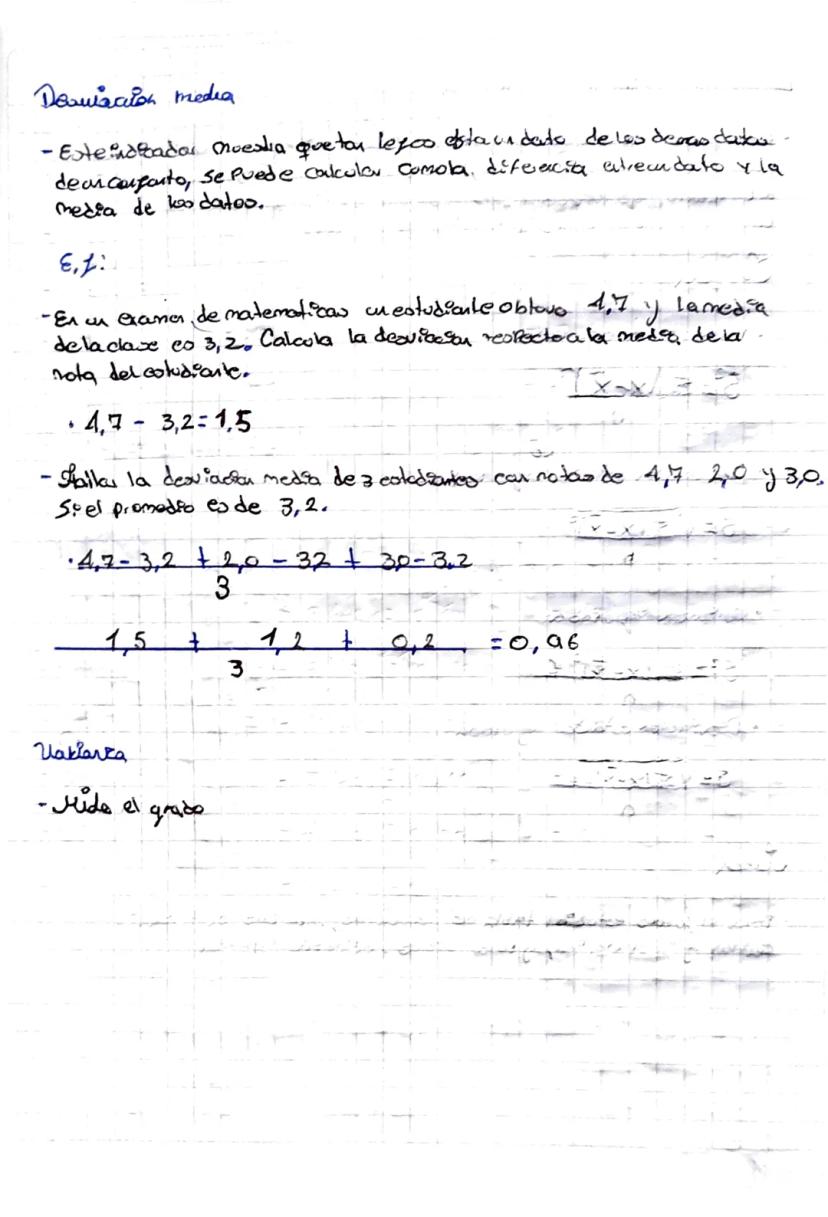 Desviación media
- Este indicador muestra que tan lejos esta un dato de los demas datos
de un conjunto, se Puede calcular como la diferencia entre un dato y la
media de los datos.
E.j:
- En un examen de matematicas un estudiante obtuvo 4,7 y la media
de la clase es 3,2. Calcula la desviación respecto a la media de la
nota del estudiante.
· 4,7 - 3,2 = 1,5
- Hallar la desviación media de 3 estudiantes con notas de 4,7 2,0 y 3,0.
Si el promedio es de 3,2.
· 4,7 - 3,2 + 2,0 - 3,2 + 3,0 - 3,2
3
1,5 + 1,2 + 0,2 = 0,96
3
Varianza
- Mide el grado